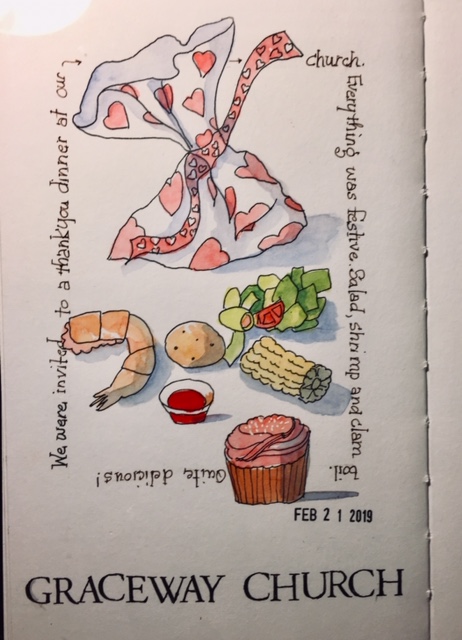 We were invited to a thankyou dinner at our
church.
Everything was festive. Salad, shrimp and clam
boil.
Quite delicious!
FEB 21 2019
GRACEWAY CHURCH